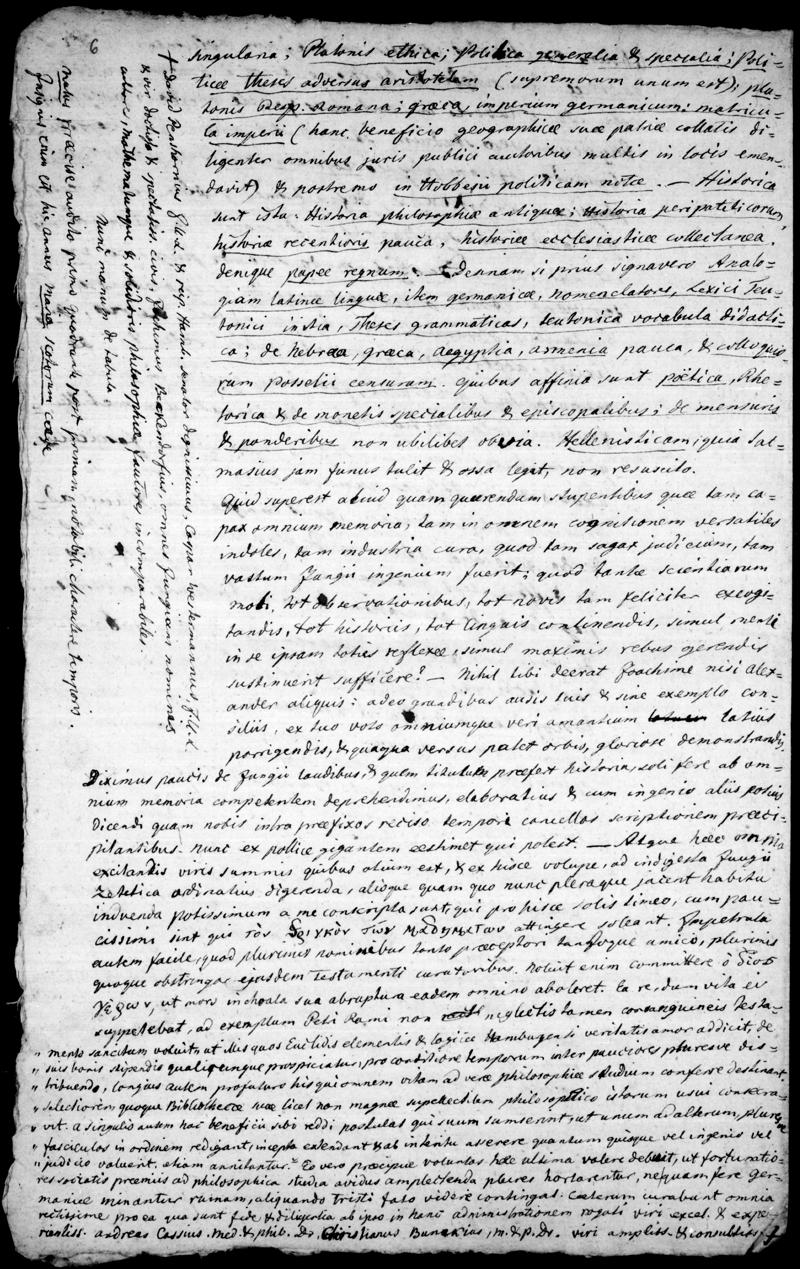 6
singularia; Platonis ethica; Politica generalia & specialia; Poli-
ticæ theses adversus aristotelem (supremorum unum est); pla-
tonis Resp. Romana; græca, imperium germanicum; matricu-
la imperii (hanc beneficio geographicæ suæ patriæ collatis di-
ligenter omnibus juris publici autoribus multis in locis emen-
davit) & postremo in Hobbesii politicam notæ. — Historica
sunt ista: Historia philosophiæ antiquæ; Historia peripateticorum,
historiæ recentioris pauca, historiæ ecclesiasticæ collectanea,
denique papæ regnum. — Dennam si prius signavero Analo-
giam latinæ linguæ, item germanicæ, nomenclatores, Lexici Teu-
tonici initia, Theses grammaticas, teutonica vocabula didacti-
ca; de hebræa, græca, Aegyptia, armenia pauca, & colloquio-
rum posselii censuram. quibus affinia sunt poëtica, Rhe-
torica & de monetis specialibus & episcopalibus; de mensuris
& ponderibus non ubilibet obvia. Hellenisticam, quia Sal-
masius jam funus tulit & ossa legit, non resuscito.
Quid superest aliud quam quærendum stupentibus quæ tam ca-
pax omnium memoria, tam in omnem cognitionem versatiles
indoles, tam industria cura, quod tam sagax judicium, tam
vastum Jungii ingenium fuerit; quod tantæ scientiarum
moli, tot observationibus, tot novis tam feliciter excogi-
tandis, tot historiis, tot linguis continendis, simul menti
in se ipsam toties reflexæ, simul maximis rebus gerendis
sustinuerit sufficere? — Nihil tibi deerat Joachime nisi Alex-
ander aliquis: adeo grandibus ausis tuis & sine exemplo con-
siliis, ex tuo voto omniumque veri amantium latius
porrigendis, & quaqua versus patet orbis, gloriose demonstrandis,
Diximus paucis de Jungii laudibus, & quem titulum præfert historia, soli fere ab om-
nium memoria competentem deprehendimus, elaboratius & cum ingenio aliis posius
dicendi quam nobis intra præfixos reciso tempori cancellos scriptionem præci-
pitantibus. nunc ex pollice gigantem æstimet qui potest. — Atque hæc omnia
excitandis viris summis quibus otium est, & ex hisce volupe, ad indigesta Jungii
zetetica ordinatius digerenda, alioque quam quo nunc pleraque jacent habitu
induenda potissimum a me conscripta sunt, qui pro hisce solis timeo, cum pau-
cissimi sint qui τὸν θριγκὸν τῶν μαθημάτων attingere soleant. Impetrata
autem facile, quod plurimis nominibus tanto præceptori tantoque amico, plurimis
quoque obstringor ejusdem Testamenti curatoribus. noluit enim committere ὁ θεῖος
γέρων, ut mors inchoata sua abruptura eadem omnino aboleret. Ea re, dum vita ei
suppetebat, ad exemplum Petri Rami non neglectis tamen consanguineis testa-
„ mento sancitum voluit, ut illis quos Euclidis elementis & logicæ Hamburgensi veritatis amor addicit, de
„ suis bonis stipendio qualicunque prospiciatur, pro conditione temporum inter pauciores pluresve dis-
„ tribuendo, longius autem profuturo his qui omnem vitam ad veræ philosophiæ studium conferre destinant.
„ selectiorem quoque Bibliothecæ suæ licet non magnæ supellectilem philosophico istorum usui consecra-
„ vit. a singulis autem hoc beneficii sibi reddi postulat qui suum sumserint, ut unum ad alterum, plures
„ fasciculos in ordinem redigant, incepta extendant & ab interitu asserere quantum quisque vel ingenio vel
„ judicio valuerit, etiam annitantur. Eo vero præcipue voluntas hæc ultima valere debuit, ut fortunatio-
res societatis præmiis ad philosophica studia avidius amplectenda plures hortarentur, nequam fere ger-
maniæ minantur ruinam, aliquando tristi fato videre contingat. Cæterum curabunt omnia
rectissime pro ea qua sunt fide & diligentia ab ipso in hanc administrationem rogati viri excel. & expe-
rientiss. andreas Cassius. Med. & phil. Dr, Christianus Bunckius, m. & p. Dr. viri ampliss. & consultiss.
† David Penshornius J.U.L. & reip. Hamb. senator dignissimus, Caspar Westermannus J.U.L.
& vir doctiss. & spectatiss. civis, Joachimus Beckendorfius, omnes Jungiani nominis
autores mathematumque & solidioris philosophiæ fautores incomparabiles.
Nunc manum de tabula.
natus præcise audito primo quadrante post primam, notabili charactere temporis.
Insignis enim est hic annus